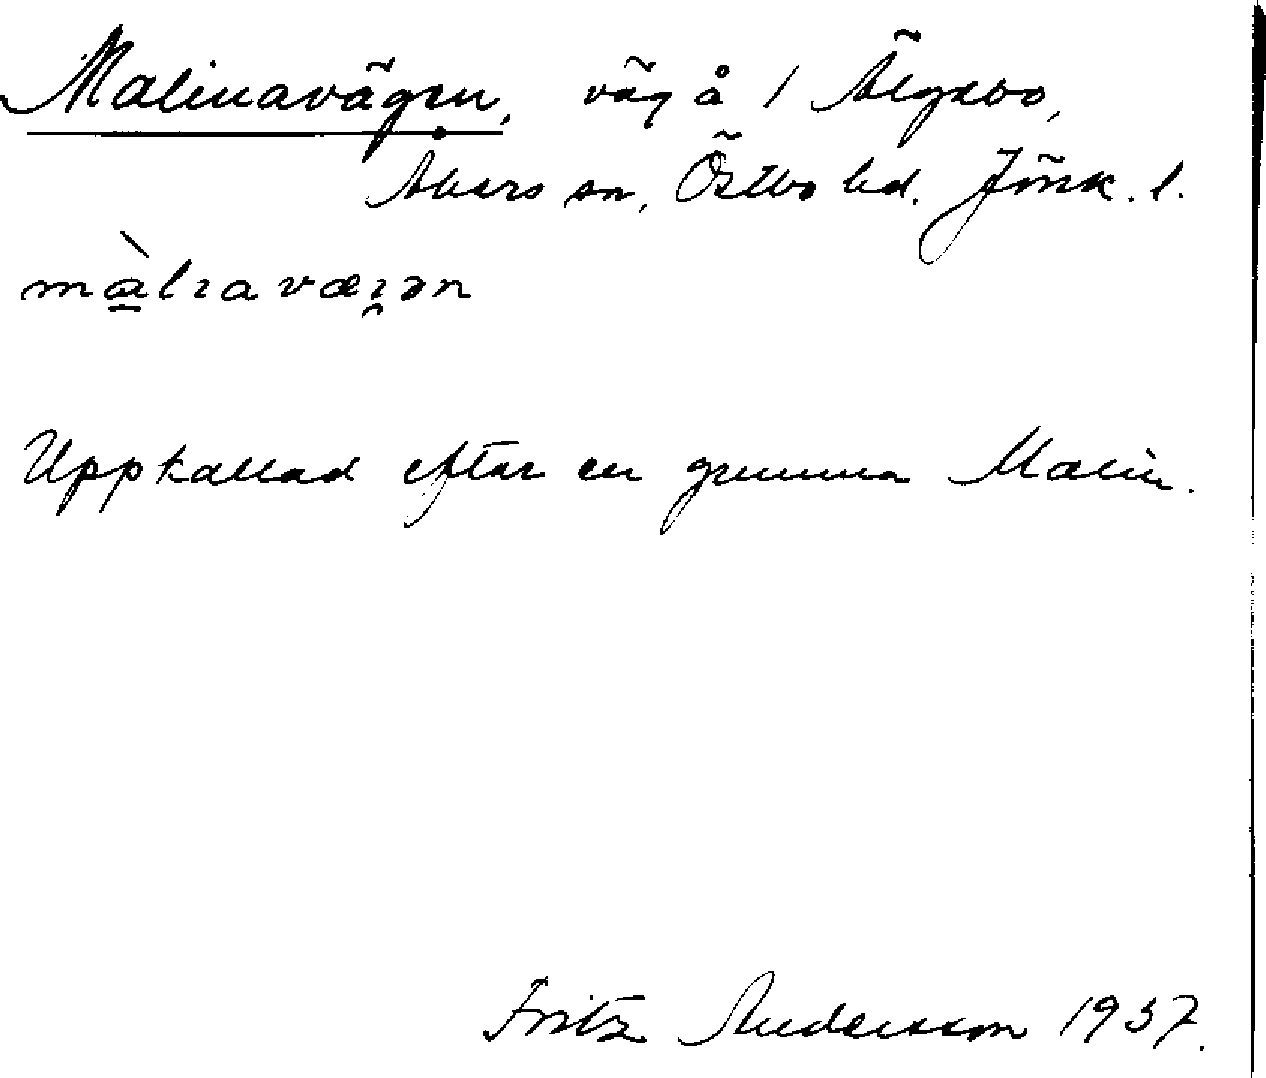 Malinavägen, väg å 1 Älgabo,
Åkers sn, Östbo hd. Jönk. l.
Uppkallad efter en gumma Malin.
Fritz Andersson 1937.